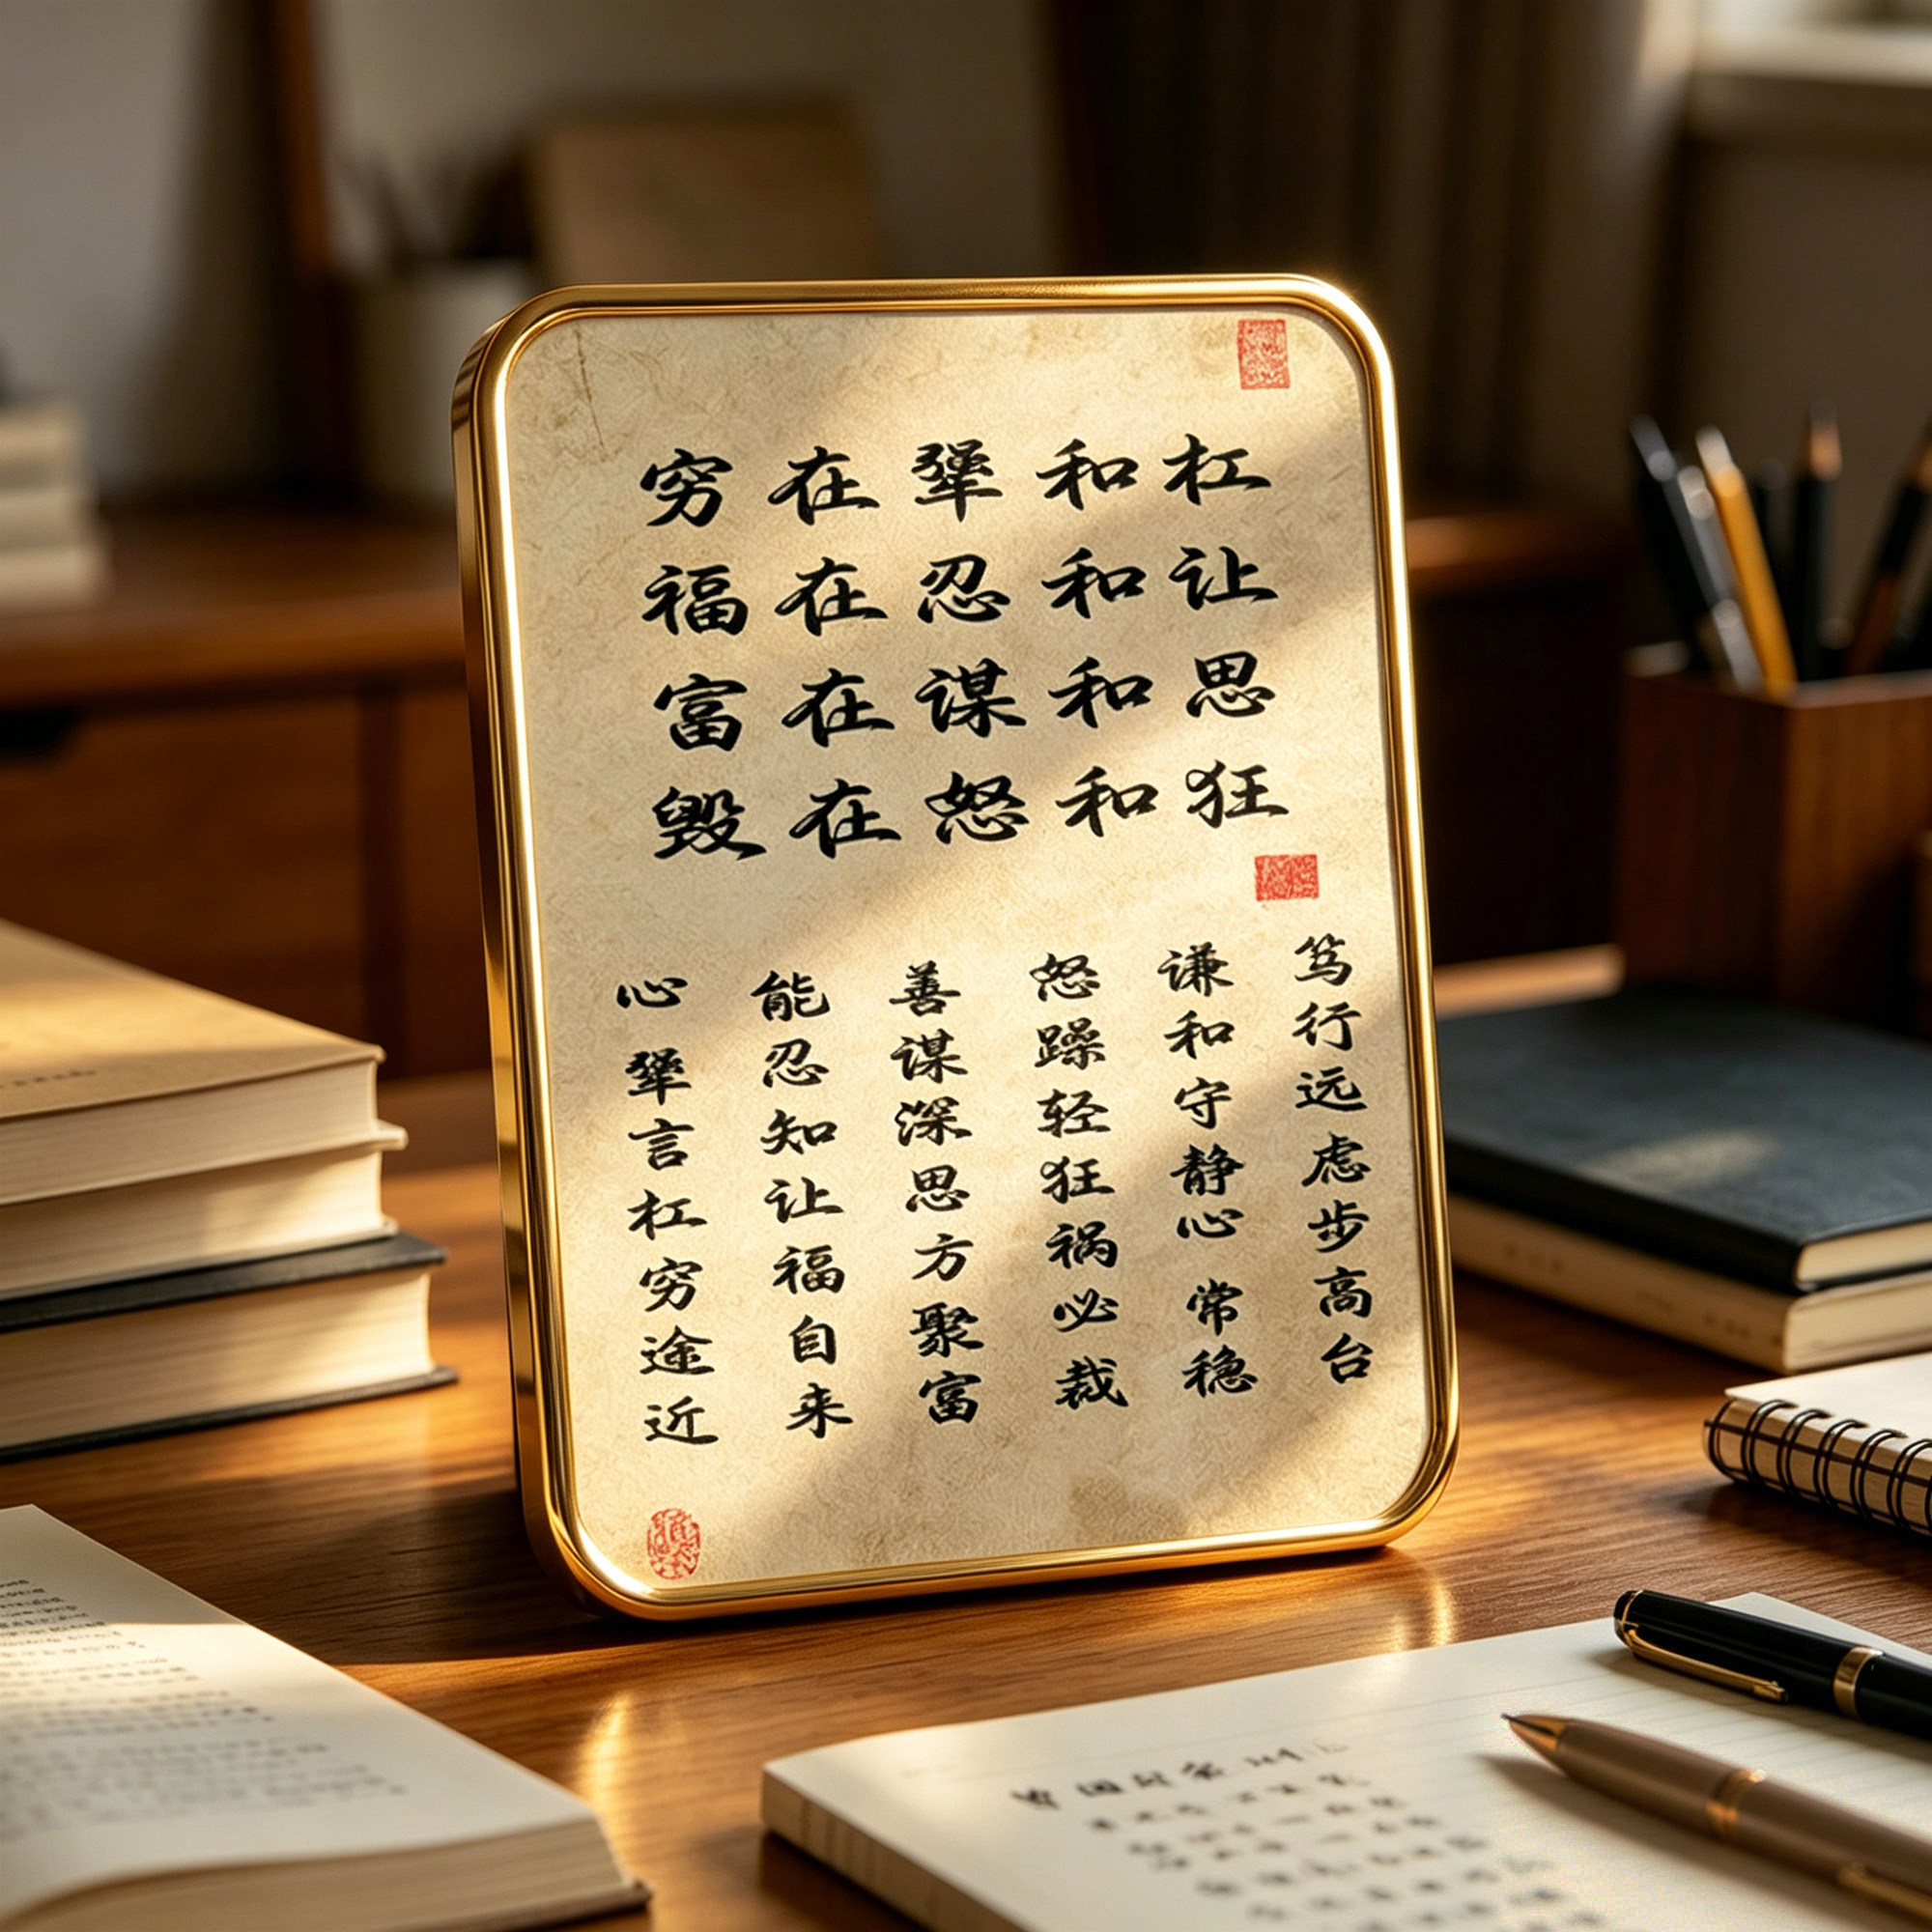 穷在犟和杠
福在忍和让
富在谋和思
毁在怒和狂
心犟言杠穷途近
能忍知让福自来
善谋深思方聚富
怒躁轻狂祸必裁
谦和守静心常稳
笃行远虑步高台